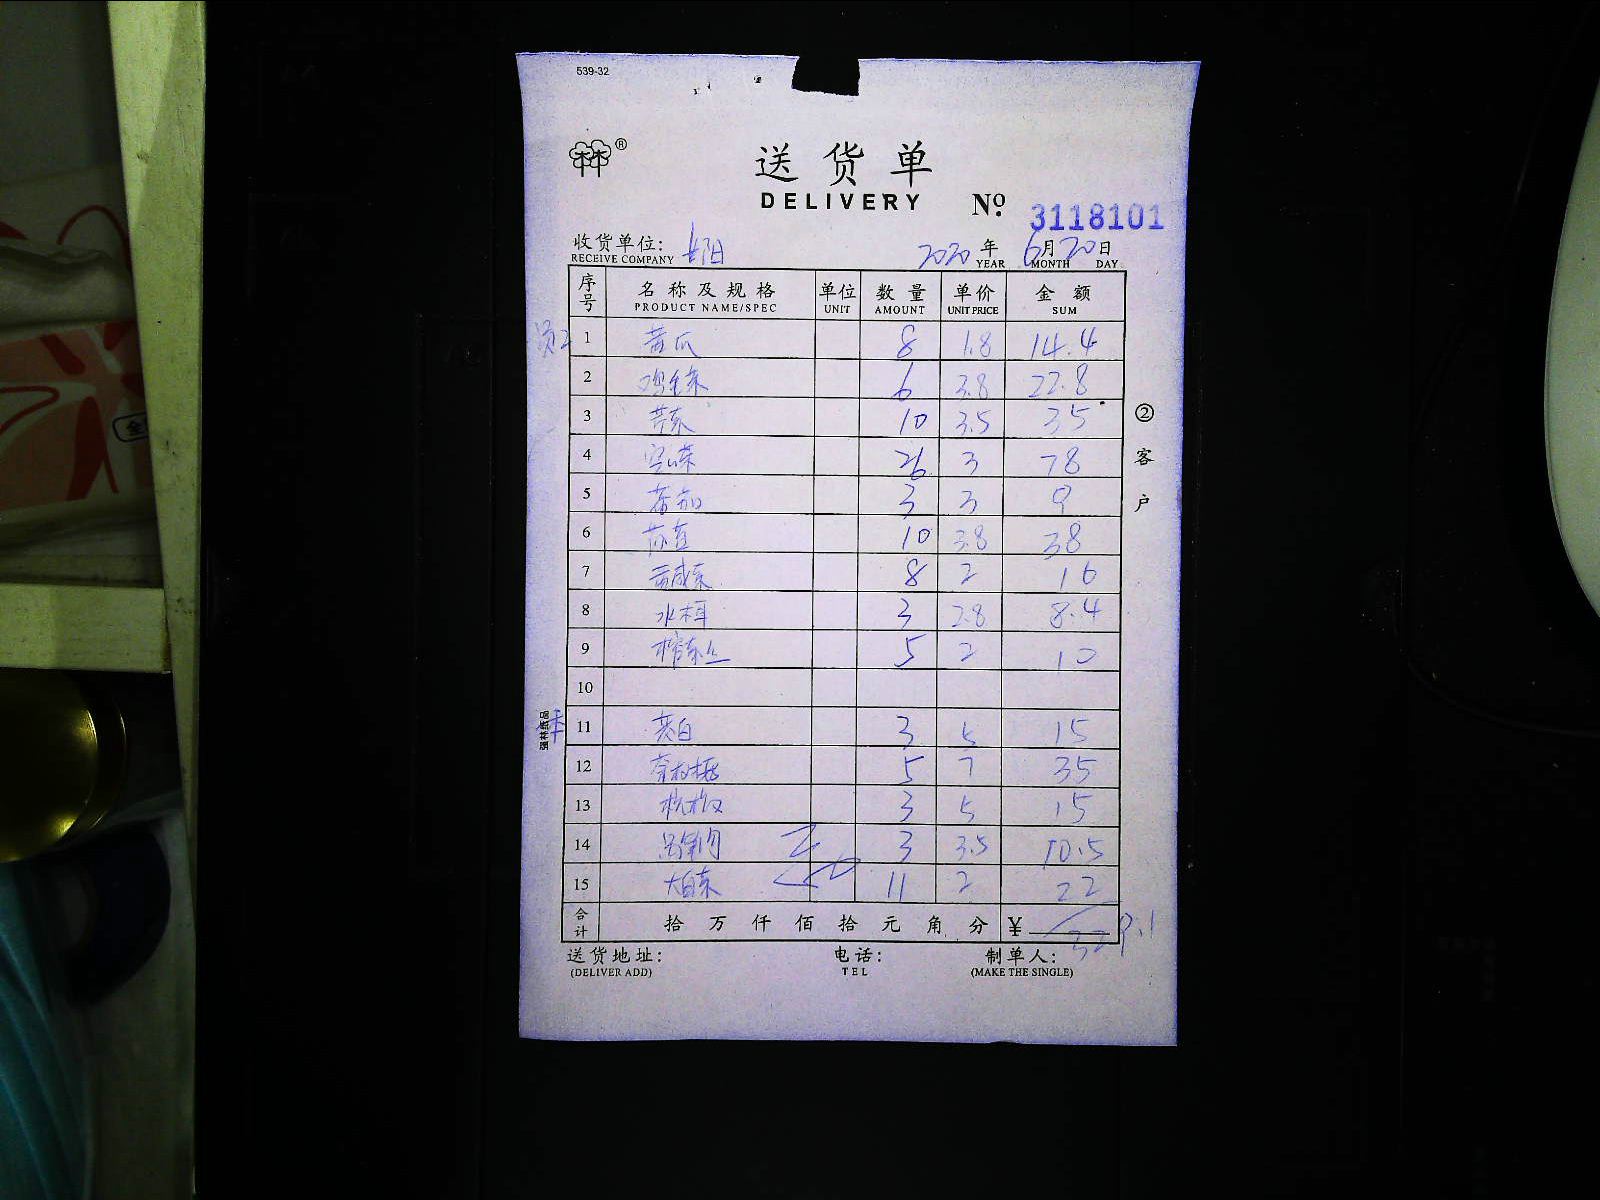 539-32
送货单
DELIVERY № 3118101
收货单位: 2020年 6月 20日
RECEIVE COMPANY YEAR MONTH DAY
序号 名称及规格 单位 数量 单价 金额
PRODUCT NAME/SPEC UNIT AMOUNT UNIT PRICE SUM
1 黄瓜 8 1.8 14.4
2 6 3.8 22.8
3 10 3.5 35
4 26 3 78
5 3 3 9
6 10 3.8 38
7 8 2 16
8 水 3 2.8 8.4
9 榨菜丝 5 2 10
10
11 茭白 3 5 15
12 5 7 35
13 3 5 15
14 3 3.5 10.5
15 大白菜 11 2 22
合计 拾 万 仟 佰 拾 元 角 分 ¥ 329.1
送货地址: 电话: 制单人:
(DELIVER ADD) TEL (MAKE THE SINGLE)
②客户
强林纸品